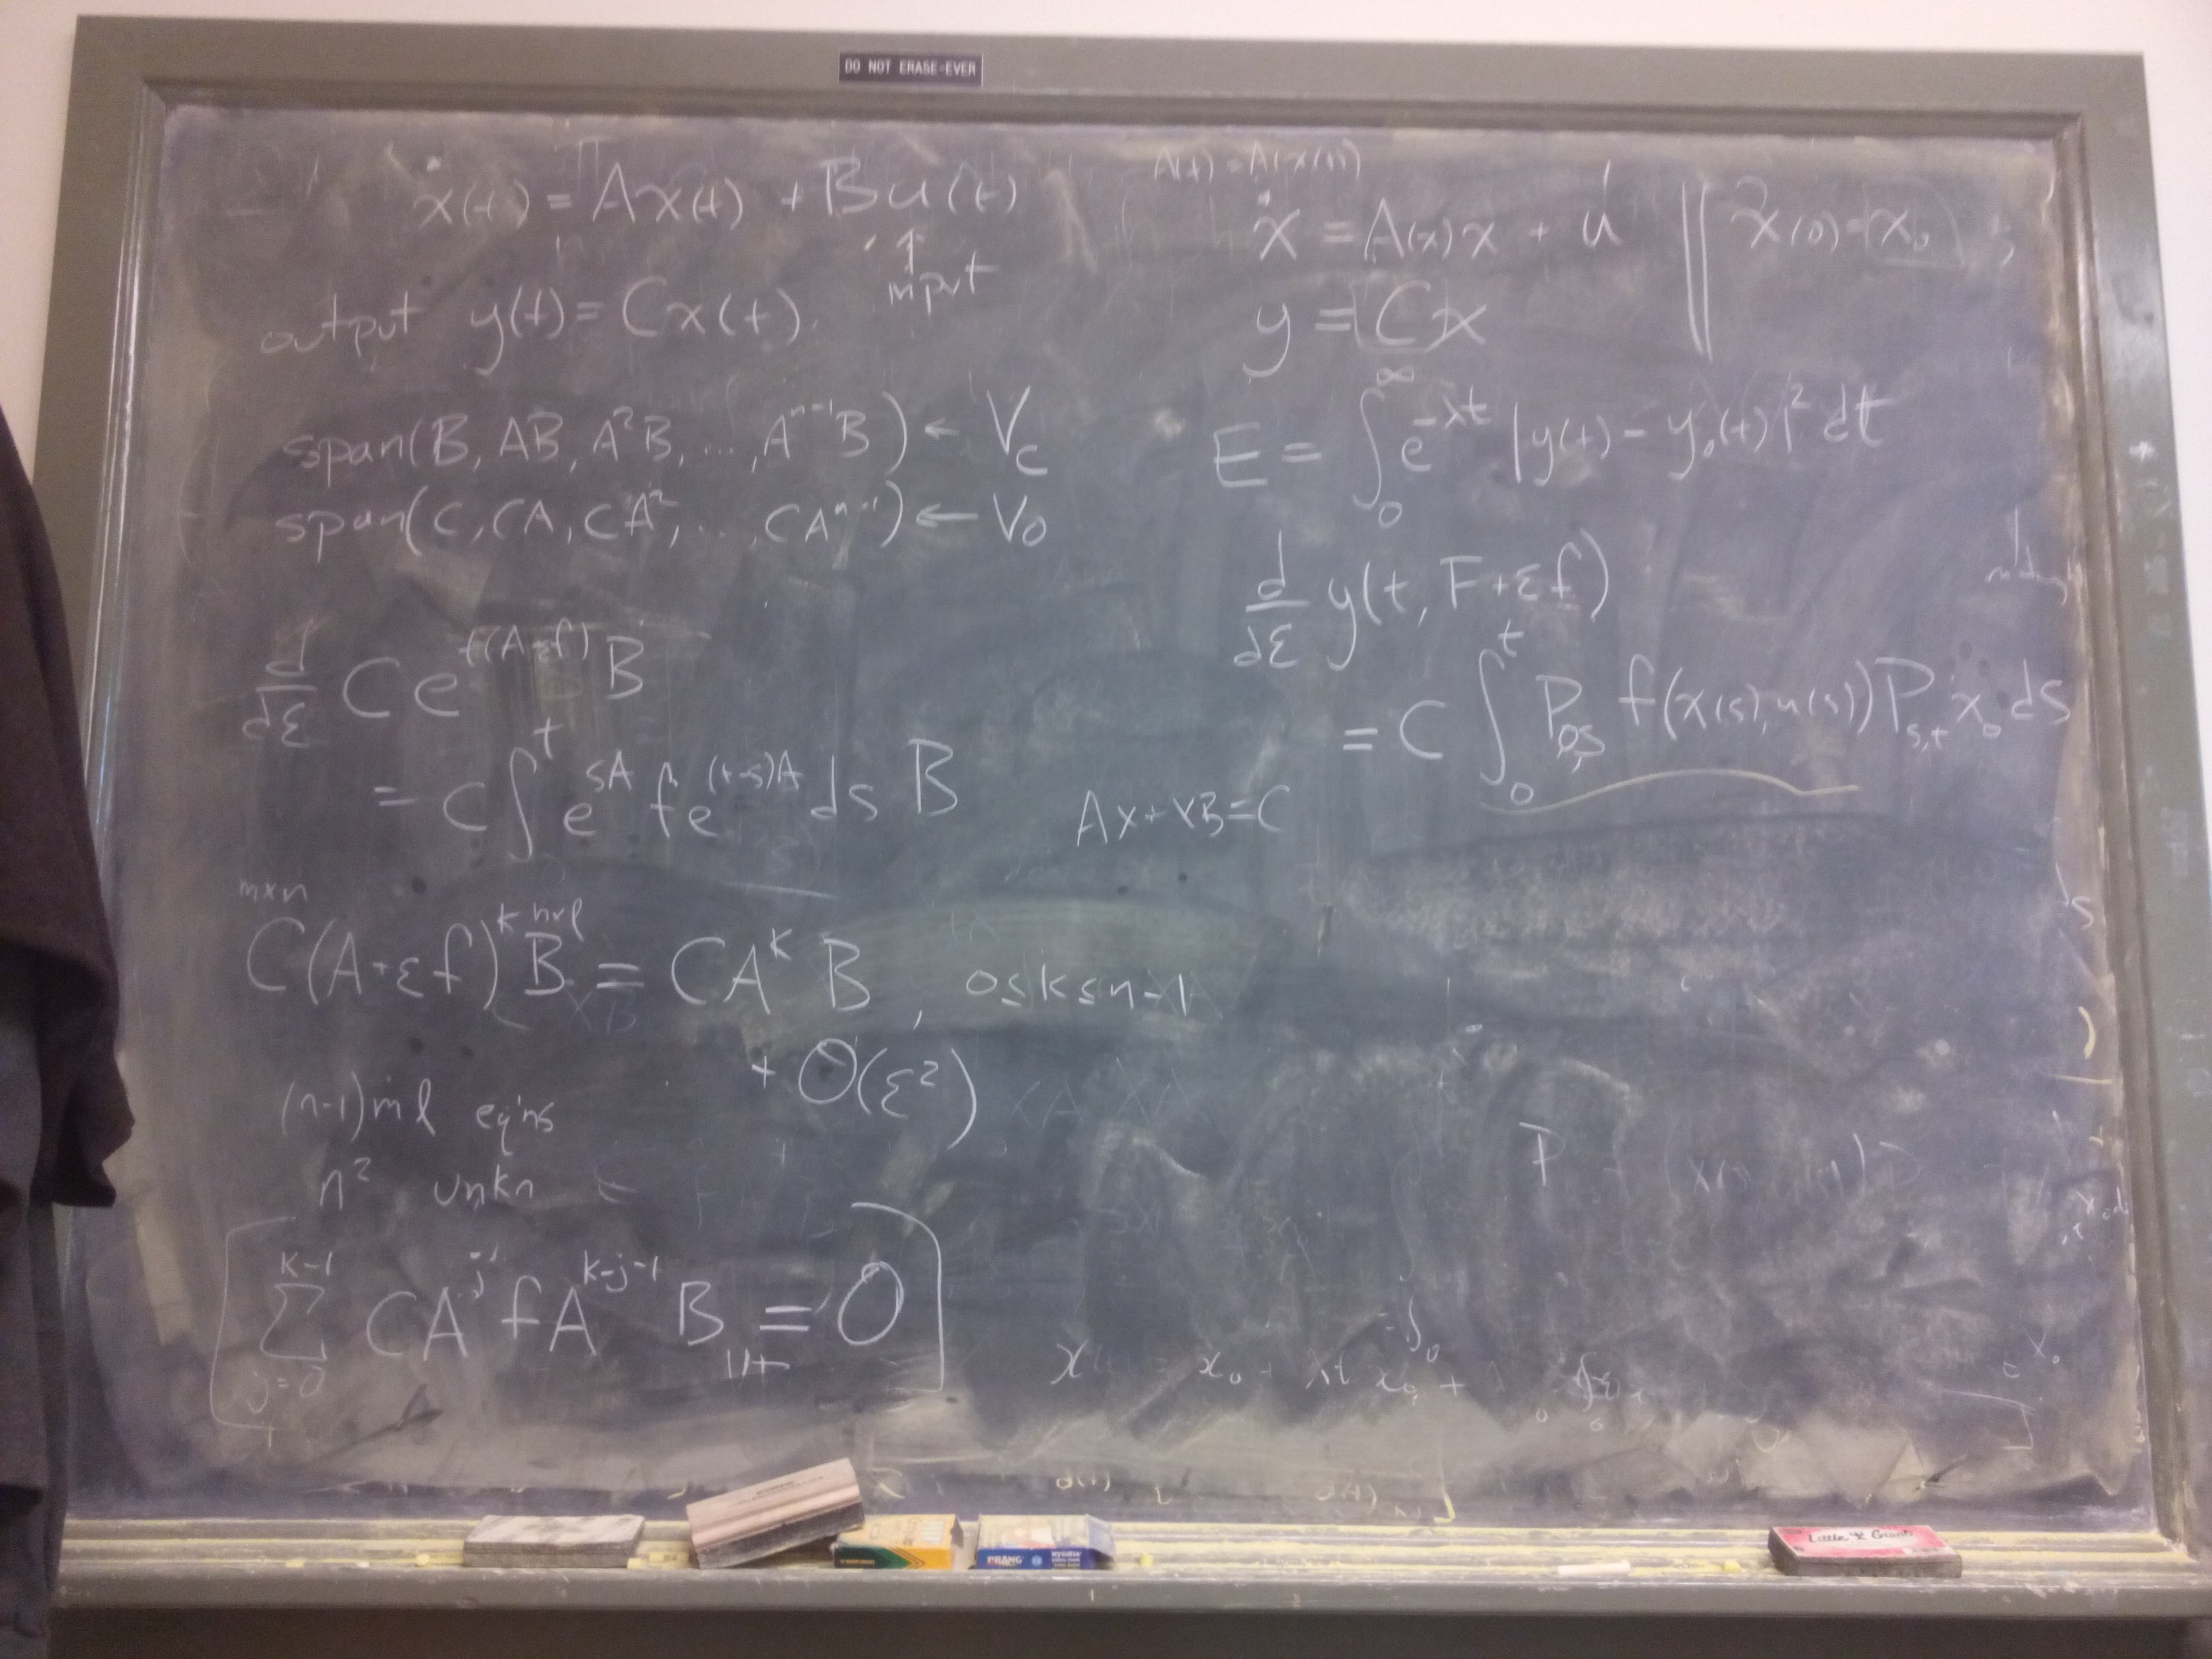 DO NOT ERASE-EVER
ẋ(t) = Ax(t) + Bu(t)
↑
input
output y(t) = Cx(t)
span(B, AB, A²B, ..., Aⁿ⁻¹B) ← V_c
span(C, CA, CA², ..., CAⁿ⁻¹) ← V_o
d/dε C e^{t(A+εf)} B
= C ∫₀^t e^{sA} f e^{(t-s)A} ds B
m×n
n×l
C(A+εf)^k B = CA^k B, 0≤k≤n-1
+ O(ε²)
(n-1)ml eq'ns
n² unkn
Σ_{j=0}^{k-1} CA^j f A^{k-j-1} B = O
AX+XB=C
A(t) = A(x(t))
ẋ = A(x)x + u || x(0)=x₀
y = Cx
E = ∫₀^∞ e^{-λt} |y(t) - y₀(t)|² dt
d/dε y(t, F+εf)
= C ∫₀^t P_{0,s} f(x(s), u(s)) P_{s,t} x₀ ds
PRANG
HYGIEIA
Little Giant